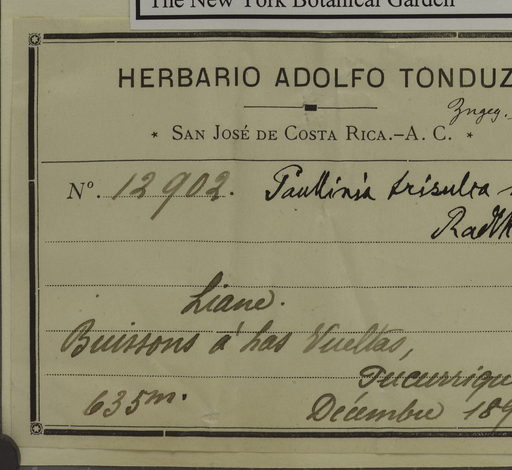 The New York Botanical Garden
HERBARIO ADOLFO TONDUZ
* SAN JOSÉ DE COSTA RICA.–A. C. *
Nº. 12902. Paullinia trisulca
Radlk
Liane.
Buissons á Las Vueltas,
Tucurrique
635m. Décembre 189